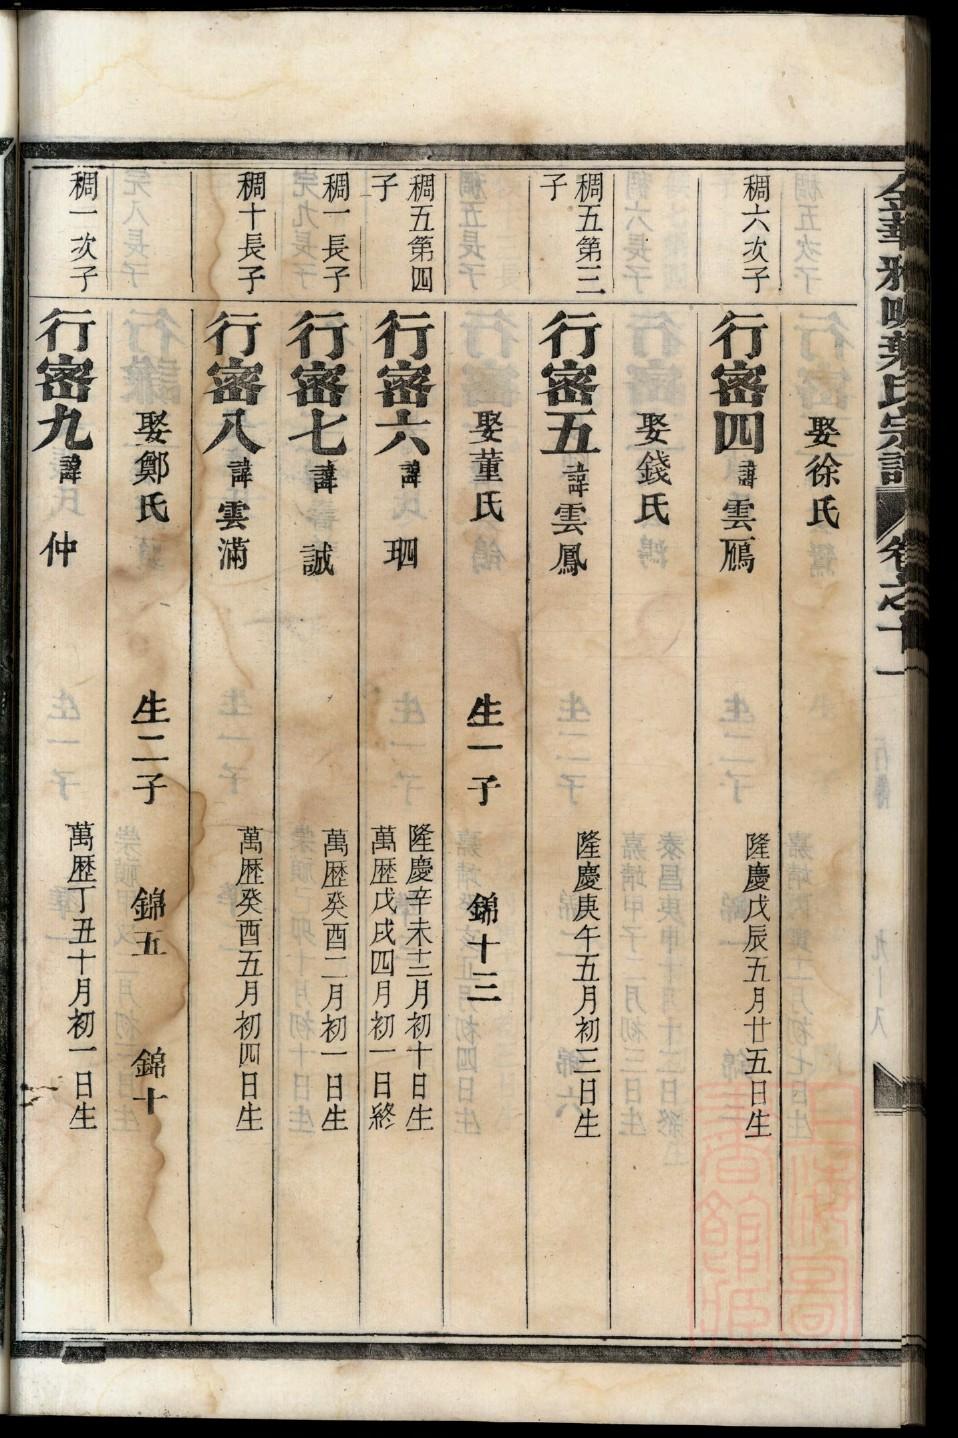 金華
葉氏宗譜
卷之十一
娶徐氏
稠六次子
行密四 諱雲鴈 隆慶戊辰五月廿五日生
娶錢氏
稠五第三子
行密五 諱雲鳳 隆慶庚午五月初三日生
娶董氏 生一子 錦十三
稠五第四子
行密六 諱珊 隆慶辛未十二月初十日生
萬歷戊戌四月初一日終
稠一長子
行密七 諱誠 萬歷癸酉二月初一日生
稠十長子
行密八 諱雲滿 萬歷癸酉五月初四日生
娶鄭氏 生二子 錦五 錦十
稠一次子
行密九 諱仲 萬歷丁丑十月初一日生